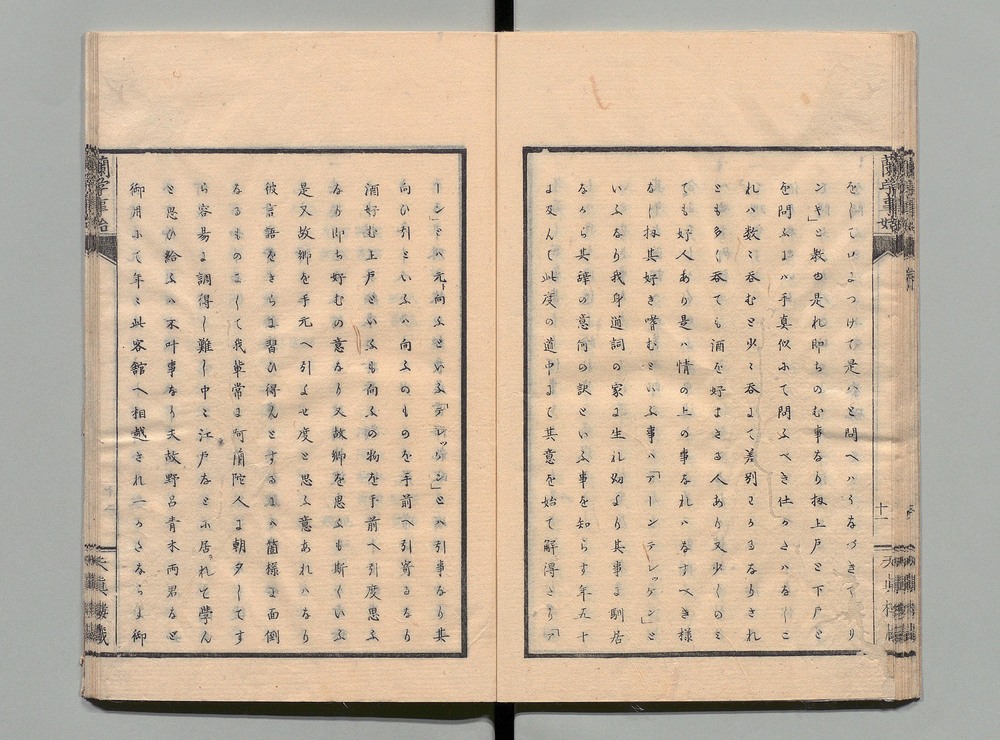 をしていよつけて是ハと問へハうなつきてり
ンキと教也是れ即ちのむ事なり扨上戸と下戸と
を問ふよハ手真似ふて問ふべき仕かさハなしこ
れハ数〻呑むと少〻呑まて差別をうるなりされ
とも多く呑ても酒を好まさる人あり又少しのミ
ても好人あり是ハ情の上の事なれハなすべき様
なし扨其好き嗜むといふ事ハ「アーンテレッケン」と
いふなり我身通詞の家ま生れ幼より其事ま馴居
なから其辞の意何の訳といふ事を知らす年五十
ま及んて此度の道中まて其意を始て解得さりア
ーンとハ元向ふといふ「テレッケン」とハ引事なり其
向ひ引といふハ向ふのものを手前へ引寄るなり
酒好む上戸といふも向ふの物を手前へ引度思ふ
なり即ち好むの意なり又故郷を思ふも斯くいふ
是又故郷を手元へ引よせ度と思ふ意あれハなり
彼言語をさらま習ひ得んとするまハ箇様ま面倒
なるものまして我輩常ま阿蘭陀人ま朝夕してす
ら容易ま調得し難し中〻江戸なとふ居られて学ん
と思ひ給ふハ不叶事なり夫故野呂青木両君なと
御用ふて年〻此客館へ相越され一かさならま御
蘭学事始
十一
天真楼蔵
蘭学事始
天真楼蔵